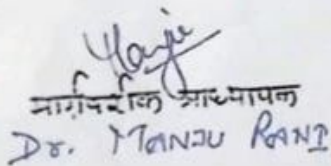 Manju
मार्गदर्शक प्राध्यापक
Dr. MANJU RANI